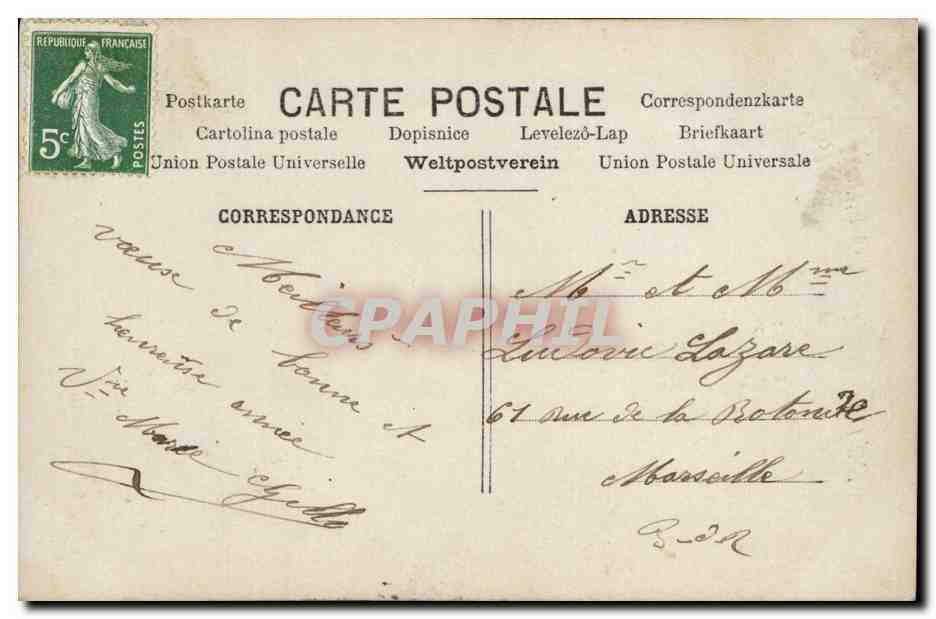 RÉPUBLIQUE FRANÇAISE
5c
POSTES
Postkarte CARTE POSTALE Correspondenzkarte
Cartolina postale Dopisnice Levelezô-Lap Briefkaart
Union Postale Universelle Weltpostverein Union Postale Universale
CORRESPONDANCE
Meilleurs
vœuse de bonne et
heureuse année
Vve Marie Gille
ADRESSE
Mr et Mme
Ludovic Lazare
61 Rue de la Rotonde
Marseille
B-d-R
CPAPHIL